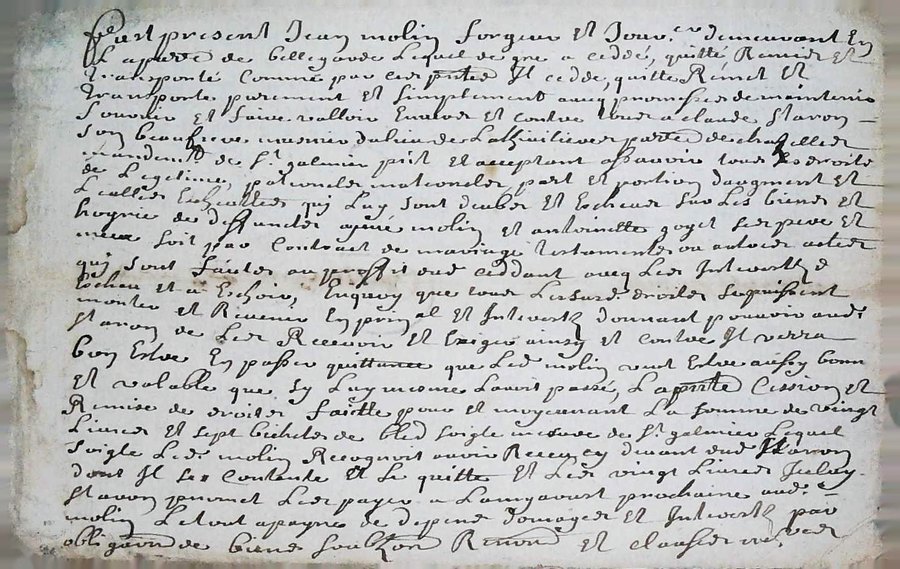 Par present Jean molin forgeur et Jour.er demeurant En
La parre de bellegarde Lequel de gre a ceddé, quitté, Remis Et
transporté Comme par ces pntes Il cedde, quitte Remet Et
transporte purement Et simplement avecq promesses de maintenir
Et faire valloir Envers et contre tous a claude
son beaufrere du lieu de parre de
mandemt de St galmier pnt et acceptant assavoir tous droits
de Legitime, paternelz maternelz, part et portion daugment Et
quy Luy sont deubz et Escheuz sur Les biens et
hoyrie de deffunctz molin et antoinette goyet ses pere et
mere soit par Contract de mariage testaments ou autres actes
quy sont faictes au proffit dud ceddant avecq Les Interestz
Escheu et a Eschoir, Enquoy que tous Lesusd. droits se puissent
monter et Revenir En prinpal et Interestz donnant pouvoir aud.
de Les Recevoir et Exiger ainsy et contre Il verra
bon Estre En passer quittance que Led molin veut Estre aussy bonne
et valable que sy Luy mesme Lavoit passé, La pnte Cession et
Remise de droits faitte pour et moyenant La somme de vingt
Livres et sept bichetz de bled soigle mesure de St galmier Lequel
soigle Led. molin Recognoit avoir Receu dud
dont Il se Contente Et Le quitte Et Les vingt Livres Iceluy
promet Les payer a prochaine aud.
molin Le tout a payne de depens domages et Interestz par
obligaon de biens Renon et clauses